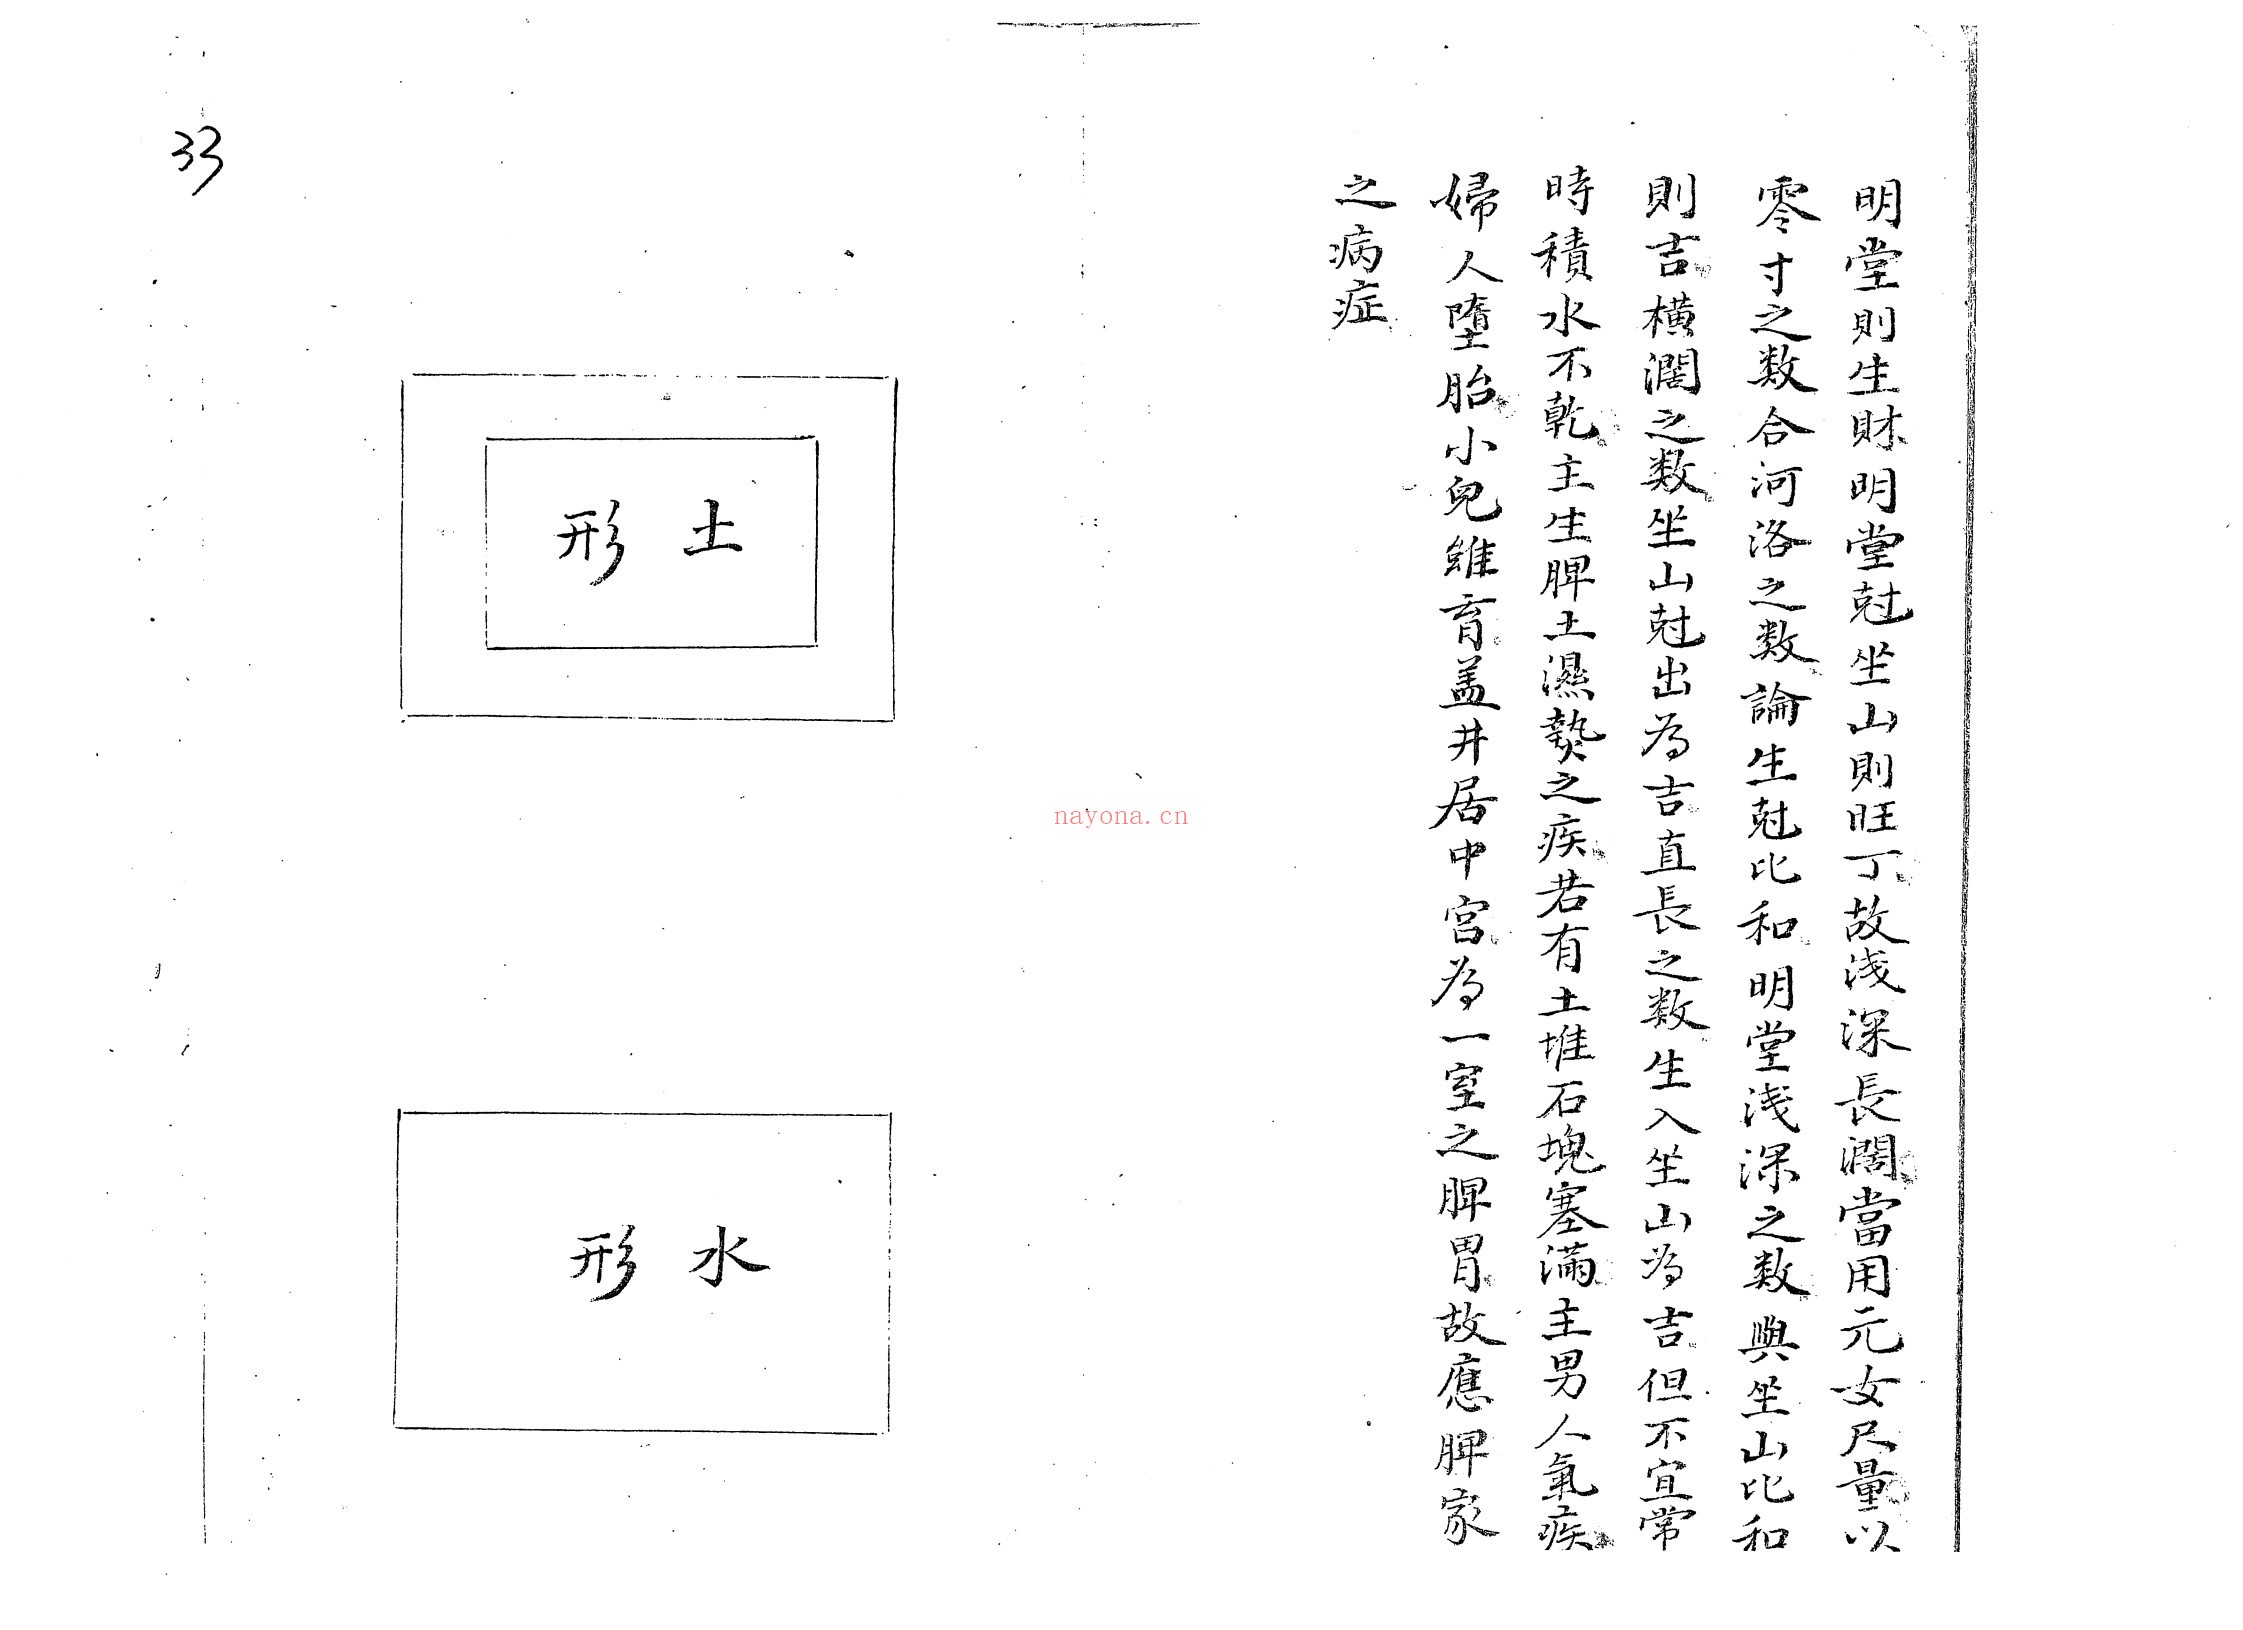 明堂則生財明堂尅坐山則旺丁故浅深長濶當用元女尺量以
零寸之数合河洛之数論生尅比和明堂浅深之数與坐山比和
則吉横濶之数坐山尅出為吉直長之数生入坐山為吉但不宜常
時積水不乾主生脾土濕𤍠之疾若有土堆石塊塞滿主男人氣疾
婦人墮胎小兒難育盖井居中宮為一室之脾胃故應脾家
之病症
土形
水形
33
nayona.cn